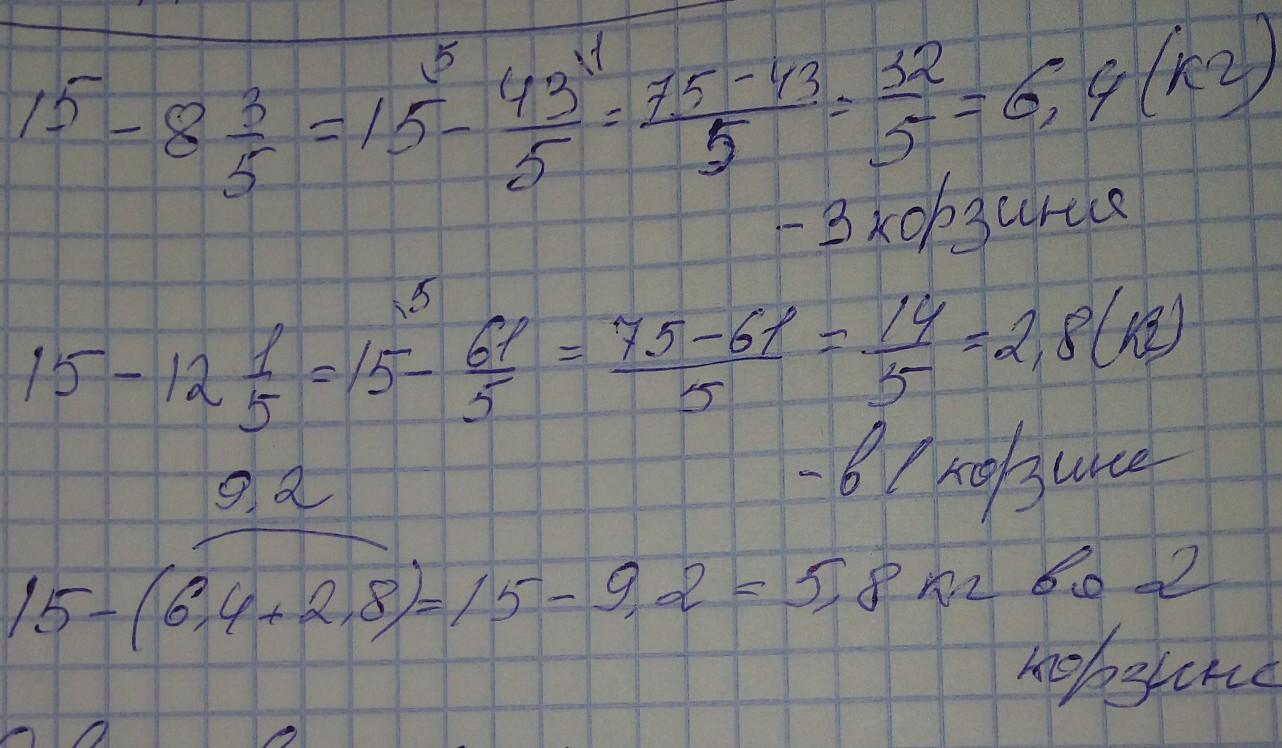 15 - 8 3/5 = 15\5 - 43\1/5 = 75-43/5 = 32/5 = 6,4 (кг)
- 3 корзина
15 - 12 1/5 = 15\5 - 61/5 = 75-61/5 = 14/5 = 2,8 (кг)
- в 1 корзине
9,2
15-(6,4+2,8)=15-9,2=5,8 кг во 2
корзине